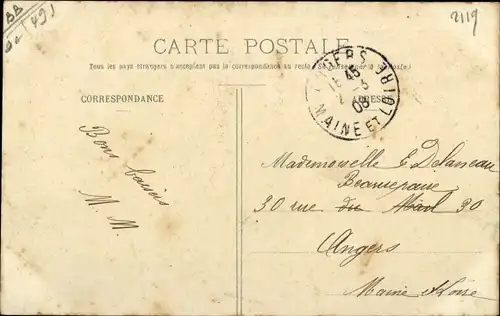 2119
CARTE POSTALE
Tous les pays étrangers n'acceptent pas la correspondance au recto (Se renseigner à la Poste)
CORRESPONDANCE
ADRESSE
ANGERS
MAINE ET LOIRE
45
08
Bons baisers
M. M.
Mademoiselle E Delaneau
Beaurepaire
30 rue du Mail 30
Angers
Maine et Loire